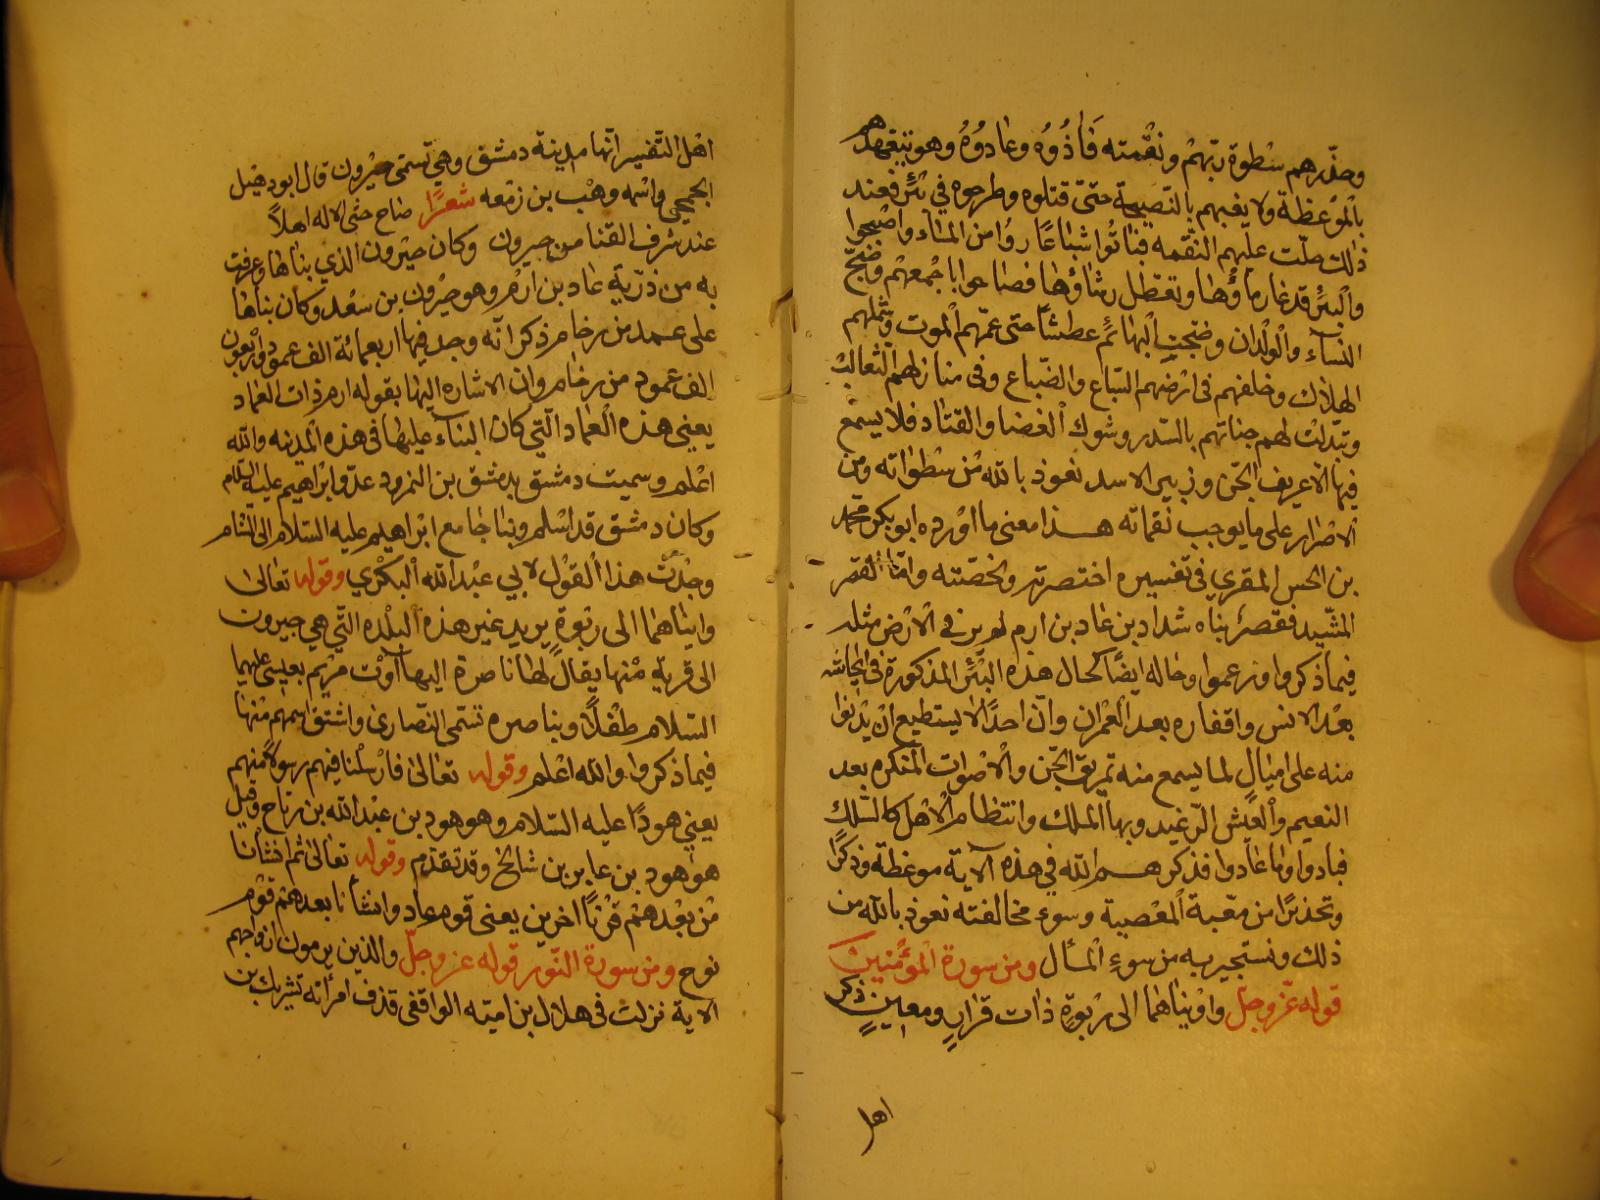 وحذّرهم سطوة ربّهم ونقمته فَاٰذُوْه وعادوْهُ وهو يتعهدهم
بالموعظة ولا يغبهم بالنّصيحة حتى قتلوه وطرحوه في بئر فعند
ذلك حلّت عليهم النقمه فباتوا شباعًا رواءً من الماء واصبحوا
والبئر قد غار ماؤها وتعطّل رشاؤها فصاحوا باجمعهم وضجّ
النساء والولدان وضجّت البهائم عطشًا حتى عمّهم الموت وشملهم
الهلاك وخلفهم في ارضهم السّباع والضّباع وفي منازلهم الثعالب
وتبدّلت لهم جناتهم بالسّدر وشوك الغضا والقتاد فلا يسمع
فيها الا عزيف الجن وزئير الاسد نعوذ بالله من سطواته ومن
الاصرار على ما يوجب نقماته هذا معنى ما اورده ابو بكر محمد
بن الحسن المقري في تفسيره اختصرته ولخصّته وامّا القصر
المشيد فقصر بناه شداد بن عاد بن ارم لم يبن في الارض مثله
فيما ذكروا وزعموا وحاله ايضًا كحال هذه البئر المذكورة في ايحاشه
بعد الانس واقفاره بعد العمران وانّ احدًا لا يستطيع ان يدنوا
منه على اميالٍ لما يسمع منه من عزيف الجن والاصوات المنكره بعد
النعيم والعيش الرّغيد وبها الملك وانتظام الاهل كالسّلك
فبادوا وما عادوا فذكرهم الله في هذه الآية موعظة وذكرًا
وتحذيرًا من مغبة المعصية وسوء مخالفته نعوذ بالله من
ذلك ونستجير به من سوء المآل ومن سورة المؤمنين
قوله عزّ وجلّ واويناهما الى ربوةٍ ذات قرارٍ ومعينٍ ذكر
اهل
اهل التّفسير انّها مدينة دمشق وهي تسمّى جيرون قال ابو دهبل
الجمحي واسمه وهب بن زمعه شعرًا صاح حيّ الاله اهلاً
عند شرف القنا من جيرون وكان جيرون الذي بناها وعرفت
به من ذرّية عاد بن ارم وهو جيرون بن سعد وكان بناها
على عمد من رخام ذكر انّه وجد فيها اربعمائة الف عمود واربعون
الف عمود من رخام وان الاشاره اليها بقوله ارم ذات العماد
يعني هذه العماد الّتي كان البناء عليها في هذه المدينه والله
اعلم وسميت دمشق بدمشق بن النمرود عدّو ابراهيم عليه السّلام
وكان دمشق قد اسلم وبنا جامع ابراهيم عليه السّلام الى الشام
وجدّت هذا القول لابي عبد الله البكري وقوله تعالى
واويناهما الى ربوةٍ يريد غير هذه البلده التّي هي جيرون
الى قرية منها يقال لها ناصرة اليها آوت مريم بعيسى عليهما
السّلام طفلاً وبناصره تسمّى النّصارى واشتق اسمهم منها
فيما ذكروا والله اعلم وقوله تعالى فارسلنا فيهم رسولاً منهم
يعني هودًا عليه السّلام وهو هود بن عبد الله بن رباح وقيل
هو هود بن عابر بن شالخ وقد تقدّم وقوله تعالى ثم انشأنا
من بعدهم قرنًا اخرين يعنى قوم عاد وانشأنا بعدهم قوم
نوح ومن سورة النّور قوله عز وجلّ والذين يرمون ازواجهم
الاية نزلت في هلال بن اميّه الواقفي قذف امرأته بشريك بن